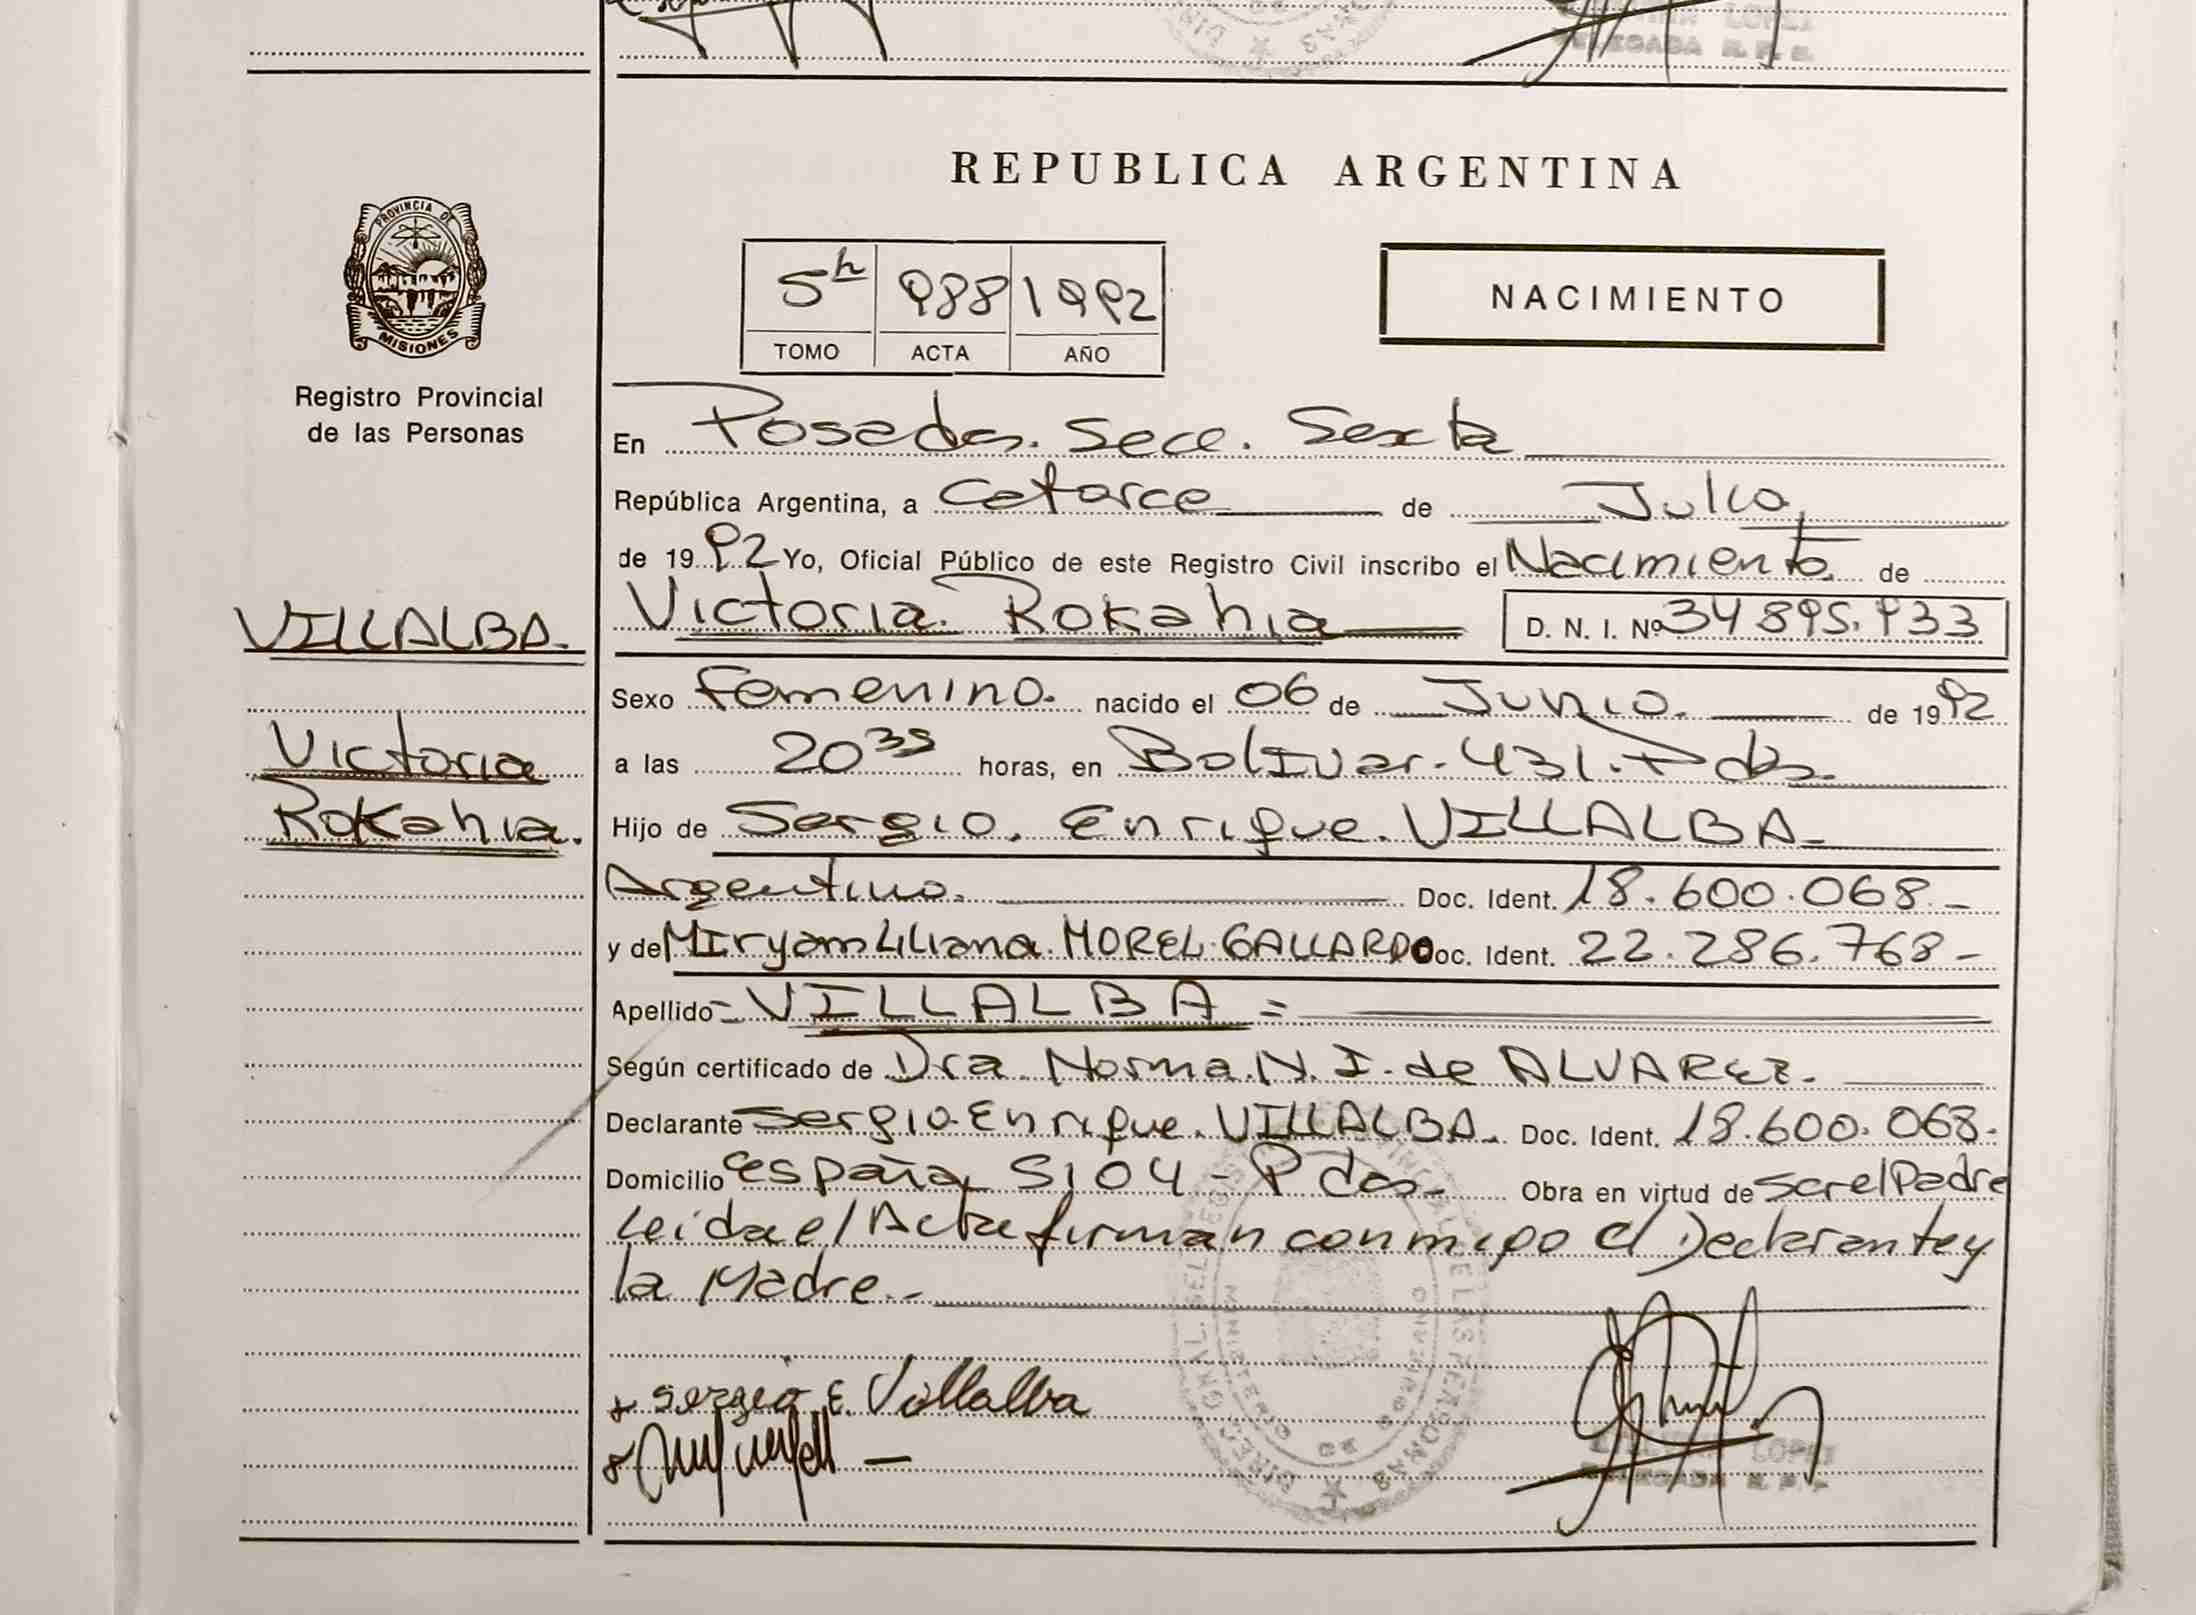 LOPEZ
DELEGADA R. P. P.
PROVINCIA DE
MISIONES
Registro Provincial
de las Personas
VILLALBA.
Victoria
Rokahia.
REPUBLICA ARGENTINA
5h 988 1992
TOMO ACTA AÑO
NACIMIENTO
En Posadas. Secc. Sexta
República Argentina, a Catorce de Julio
de 1992 Yo, Oficial Público de este Registro Civil inscribo el Nacimiento de
Victoria Rokahia D. N. I. Nº 34 895.933
Sexo Femenino. nacido el 06 de Junio. de 1992
a las 20 35 horas, en Bolivar. 431. Pdas.
Hijo de Sergio. Enrique. VILLALBA
Argentino. Doc. Ident. 18.600.068
y de Miryam Liliana. MOREL. GALLARDO Doc. Ident. 22.286.768
Apellido = VILLALBA =
Según certificado de Dra. Norma. N. I. de ALVAREZ.
Declarante Sergio Enrique. VILLALBA. Doc. Ident. 18.600.068.
Domicilio españa 5104 - Pdas. Obra en virtud de ser el Padre
Leida el Acta firman conmigo el Declarante y
la Madre.-
Sergio E. Villalba
LOPEZ